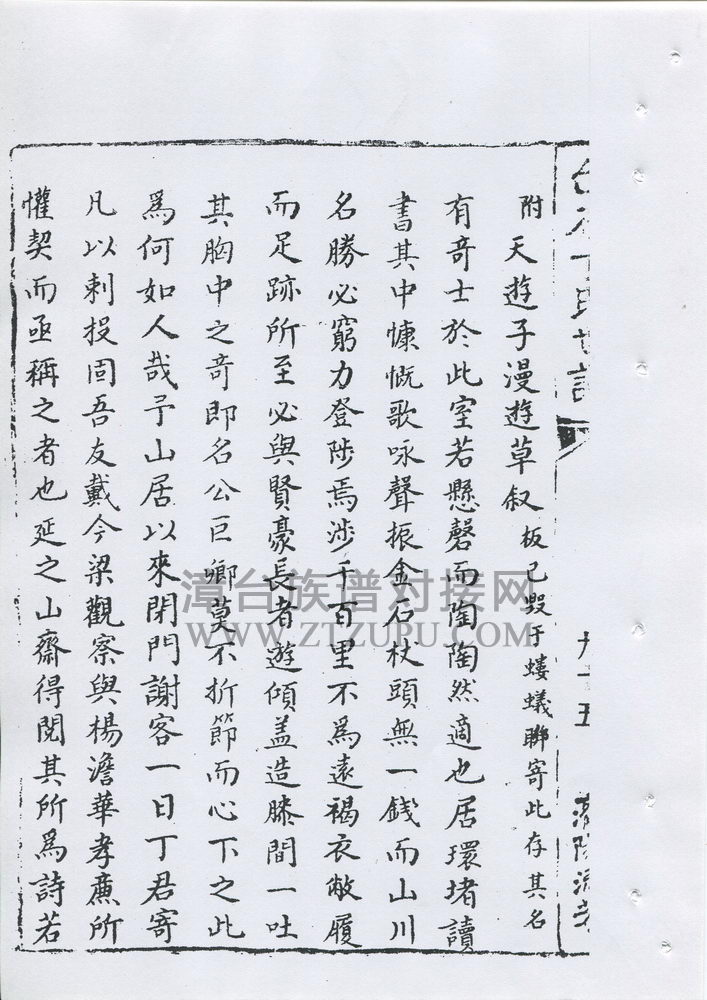 附 天遊子漫遊草叙 板已毀于螻蟻聯寄此存其名
有竒士於此室若懸磬而陶陶然適也居環堵讀
書其中慷慨歌咏聲振金石杖頭無一錢而山川
名勝必窮力登陟焉涉千百里不為遠褐衣敝履
而足跡所至必與賢豪長者遊傾盖造膝間一吐
其胸中之竒即名公巨卿莫不折節而心下之此
為何如人哉予山居以來閉門謝客一日丁君寄
凡以刺投固吾友戴今梁觀察與楊澹華孝廉所
懽契而亟稱之者也延之山齋得閱其所為詩若
漳台族谱对接网
WWW.ZTZUPU.COM